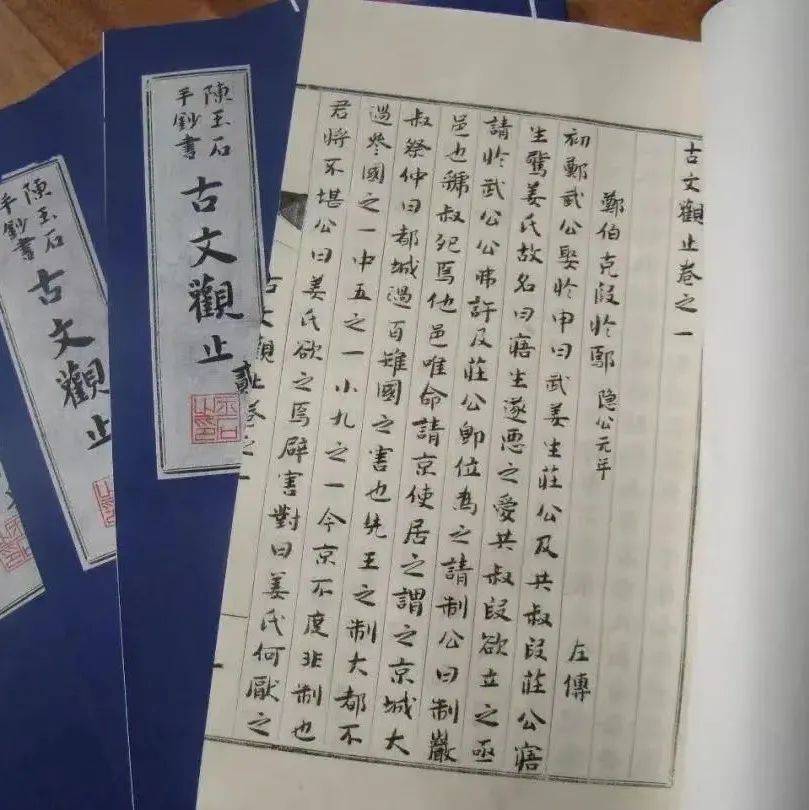 古文觀止卷之一
鄭伯克段於鄢 隱公元年 左傳
初鄭武公娶於申曰武姜生莊公及共叔段莊公寤
生驚姜氏故名曰寤生遂惡之愛共叔段欲立之亟
請於武公公弗許及莊公即位為之請制公曰制巖
邑也虢叔死焉他邑唯命請京使居之謂之京城大
叔祭仲曰都城過百雉國之害也先王之制大都不
過參國之一中五之一小九之一今京不度非制也
君將不堪公曰姜氏欲之焉辟害對曰姜氏何厭之
古文觀止卷之一
陳玉石
手鈔書
古文觀止
貳
陳玉石
手鈔書
古文觀止